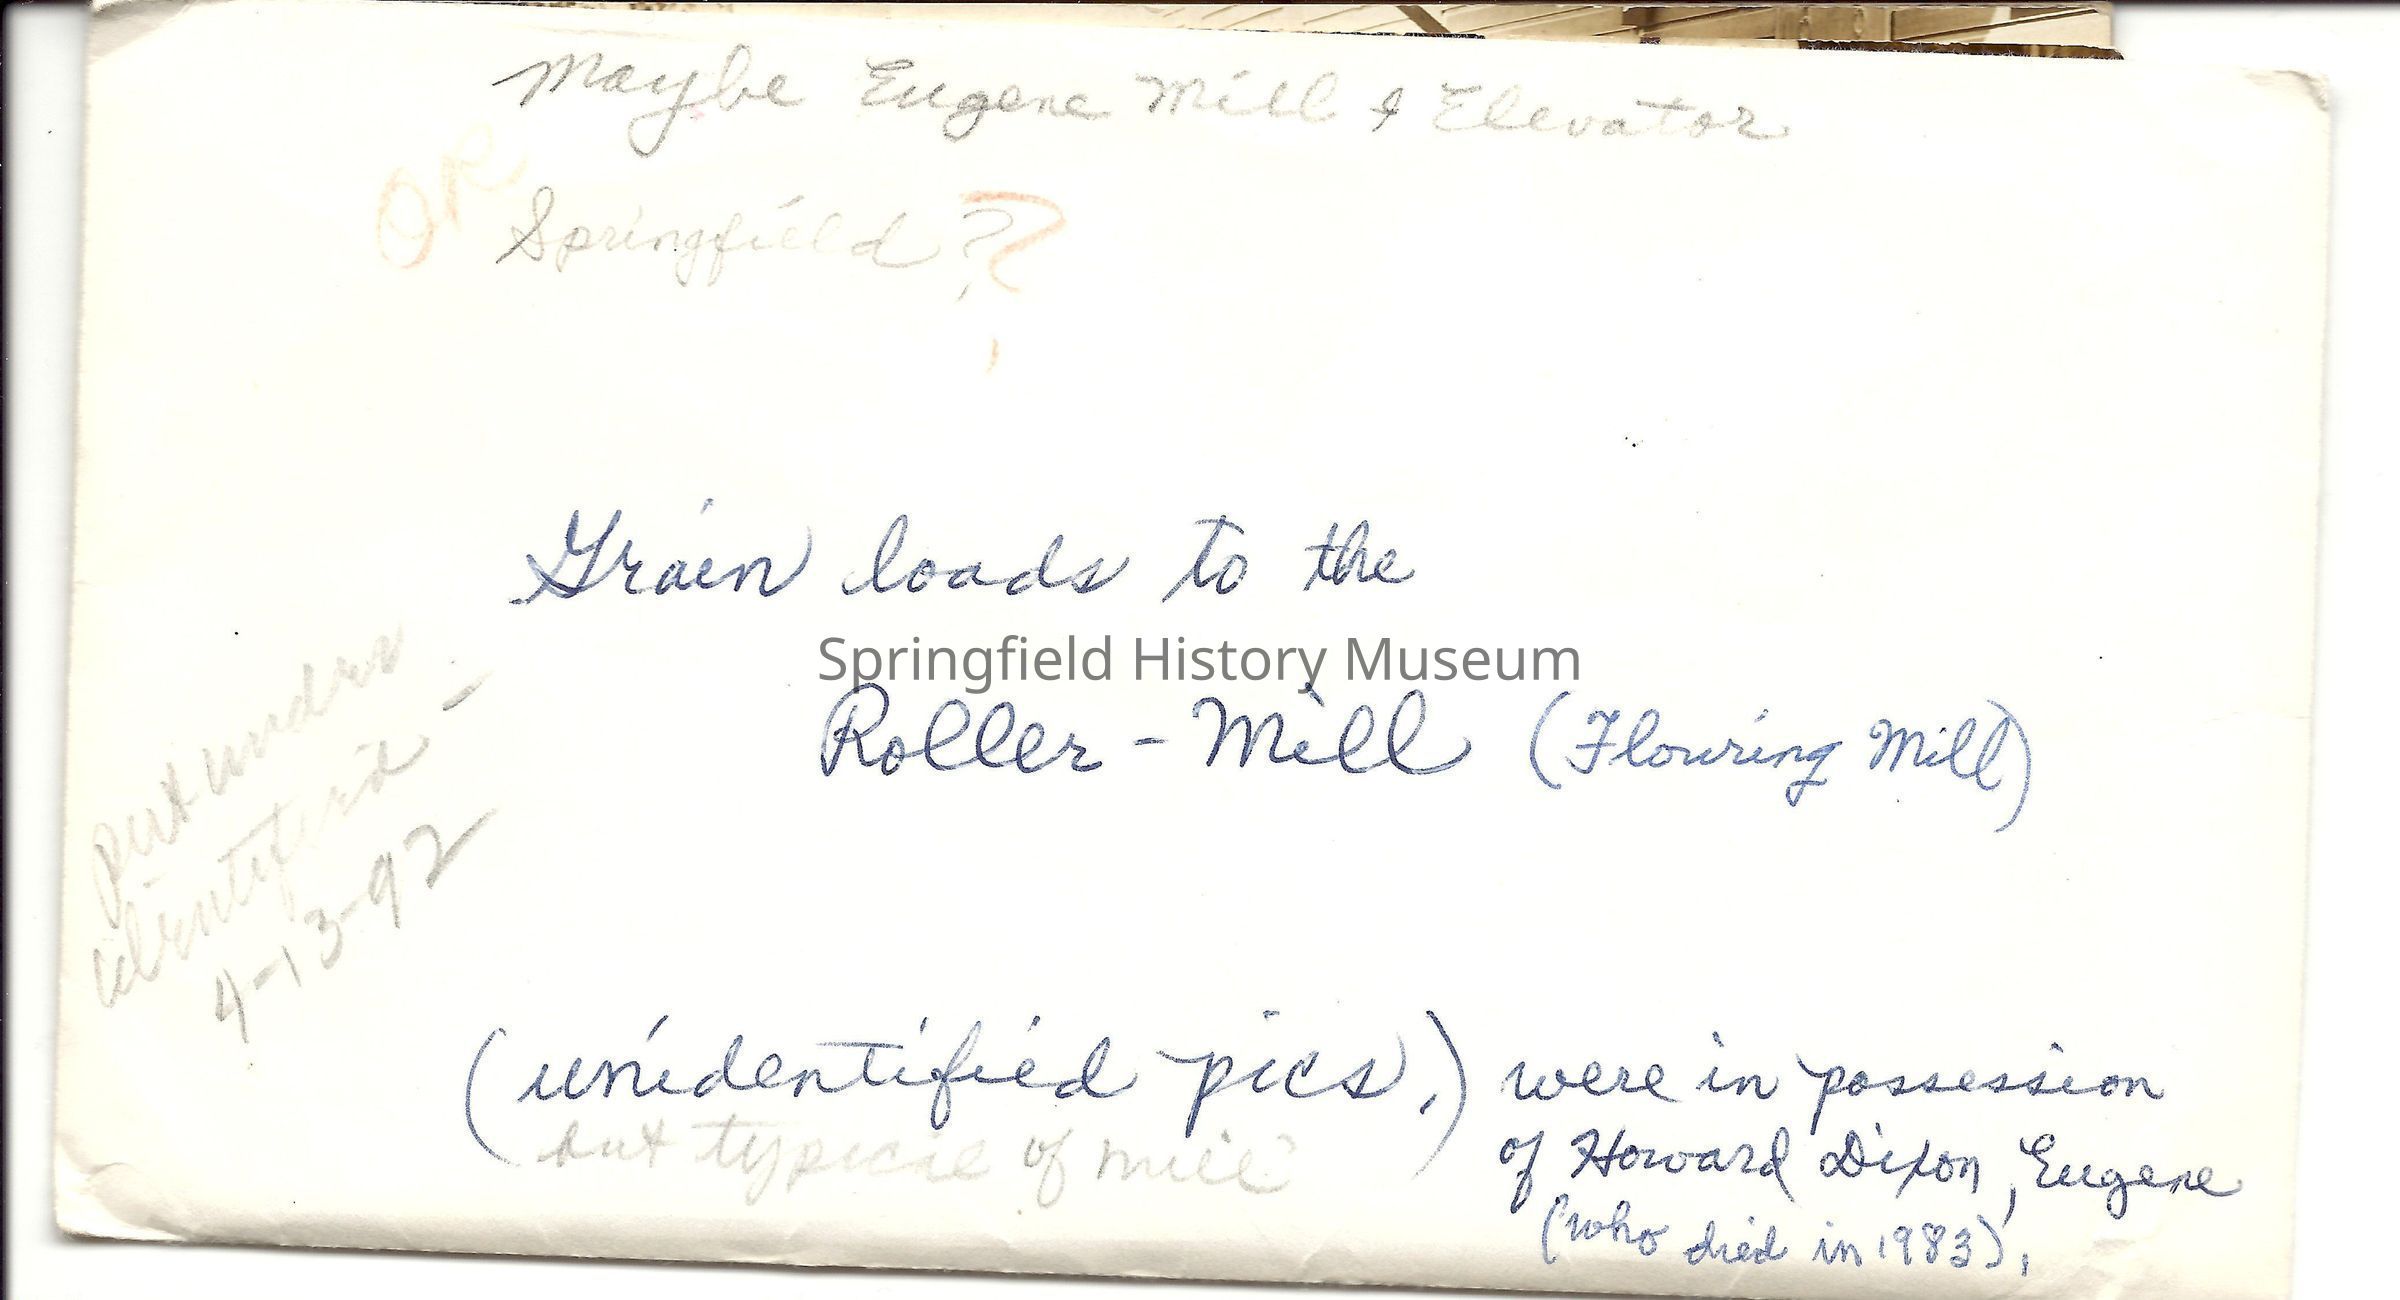 Maybe Eugene Mill & Elevator
OR
Springfield?
Grain loads to the
Springfield History Museum
Roller-Mill (Flouring Mill)
put under
identified -
4-13-92
(unidentified pics.) were in possession
but typical of mill
of Howard Dixon, Eugene
(who died in 1983).